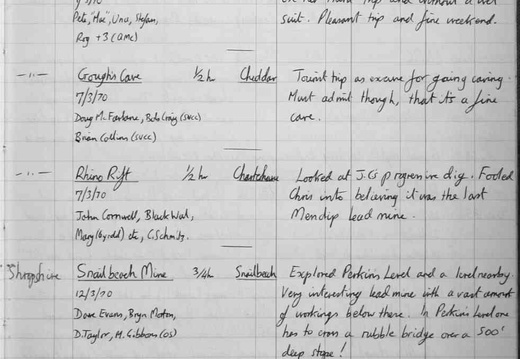 suit. Pleasant trip and fine weekend.
Pete, "Hue", Una, Stefan,
Rog +3 (QMC)
—"— Gough's Cave ½h Cheddar Tourist trip as excuse for going caving.
7/3/70 Must admit though, that it's a fine
Doug McFarlane, Bob Craig (SVCC) cave.
Brian Collins (SVCC)
—"— Rhino Rift ½h Charterhouse Looked at J.C's progressive dig. Fooled
7/3/70 Chris into believing it was the last
John Cornwell, Black Wal, Mendip lead mine.
Mary (Gyrdd) etc, C. Schmitz.
Shropshire Snailbeach Mine 3/4h Snailbeach Explored Perkins Level and a level nearby.
12/3/70 Very interesting lead mine with a vast amount
Dave Evans, Bryn Moton, of workings below there. In Perkins Level one
D. Taylor, M. Gibbons (OS) has to cross a rubble bridge over a 500'
deep stope!